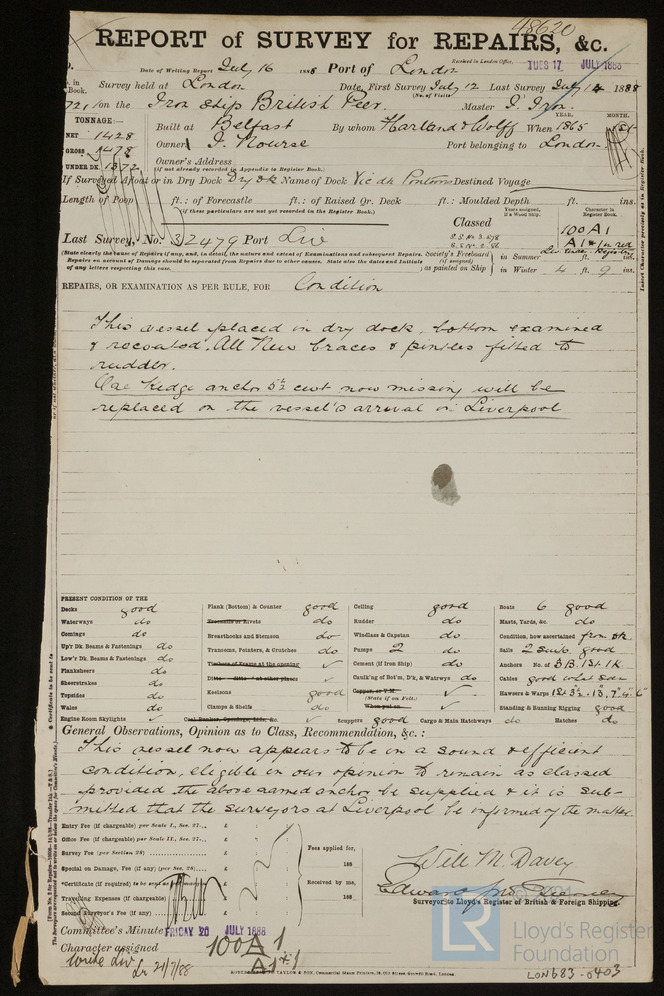 48620
REPORT of SURVEY for REPAIRS, &c.
Received in London Office,
Date of Writing Report July 16 1888 Port of London TUES 17 JULY 1888
in Book. Survey held at London Date, First Survey July 12 Last Survey July 14 1888
(No. of Visits)
721 on the Iron ship British Peer. Master J. Iron.
TONNAGE:— YEAR. MONTH.
NET 1428 Built at Belfast By whom Harland & Wolff When 1865
GROSS 1478 Owner J. Nourse Port belonging to London
UNDER DK. 1372 Owner's Address
(if not already recorded in Appendix to Register Book.)
If Surveyed Afloat or in Dry Dock Dry dk Name of Dock Vic dk Pontoons Destined Voyage
Length of Poop ft.: of Forecastle ft.: of Raised Qr. Deck ft.: Moulded Depth ft. ins.
(if these particulars are not yet recorded in the Register Book.)
Years assigned, if a Wood Ship. Character in Register Book.
Classed 100 A1
Last Survey, No. 32479 Port Liv
A1 * in red
(State clearly the cause of Repairs if any, and, in detail, the nature and extent of Examinations and subsequent Repairs.
Repairs on account of Damage should be separated from Repairs due to other causes. State also the dates and Initials
of any letters respecting this case.
Society's Freeboard (if assigned) as painted on Ship
in Summer ft. ins.
in Winter 4 ft. 9 ins.
REPAIRS, OR EXAMINATION AS PER RULE, FOR Condition
This vessel placed in dry dock, bottom examined
& recoated. All New braces & pintles fitted to
rudder.
One Kedge anchor 5½ cwt now missing will be
replaced on the vessel's arrival in Liverpool
PRESENT CONDITION OF THE
Decks good
Waterways do
Comings do
Up'r Dk. Beams & Fastenings do
Low'r Dk. Beams & Fastenings do
Planksheers do
Sheerstrakes do
Topsides do
Wales do
Engine Room Skylights ✓
Plank (Bottom) & Counter good
Treenails or Rivets do
Breasthooks and Stemson do
Transoms, Pointers, & Crutches do
Timbers of Frame at the opening ✓
Ditto ditto at other places ✓
Keelsons good
Clamps & Shelfs do
Coal Bunker, Openings, Lids, &c. ✓
Ceiling good
Rudder do
Windlass & Capstan do
Pumps 2 do
Cement (if Iron Ship) do
Caulk'ng of Bot'm, D'k, & Watrwys do
Copper, or Y.M. ✓
(State if on Felt.)
When put on ✓
Scuppers good Cargo & Main Hatchways do
Boats 6 good
Masts, Yards, &c. do
Condition, how ascertained from dk
Sails 2 suits good
Anchors No. of 3 B. 1 St. 1 K.
Cables good
Hawsers & Warps
Standing & Running Rigging good
Hatches do
General Observations, Opinion as to Class, Recommendation, &c.:
This vessel now appears to be in a sound & efficient
condition, eligible in our opinion to remain as classed
provided the above named anchor be supplied & it is sub-
mitted that the surveyors at Liverpool be informed of the matter.
Entry Fee (if chargeable) per Scale I., Sec. 27... £
Office Fee (if chargeable) per Scale II., Sec. 27... £
Survey Fee (per Section 28) £
Special on Damage, Fee (if any) (per Sec. 28)... £
*Certificate (if required) to be sent as per margin £
Travelling Expenses (if chargeable) £
Second Surveyor's Fee (if any) £
Fees applied for,
188
Received by me,
188
Will M. Davey
Surveyor to Lloyd's Register of British & Foreign Shipping.
Committee's Minute FRIDAY 20 JULY 1888
Character assigned 100 A 1
A1 *
Write Liv
Lr 21/7/88
LR
Lloyd's Register
Foundation
LON683-0403